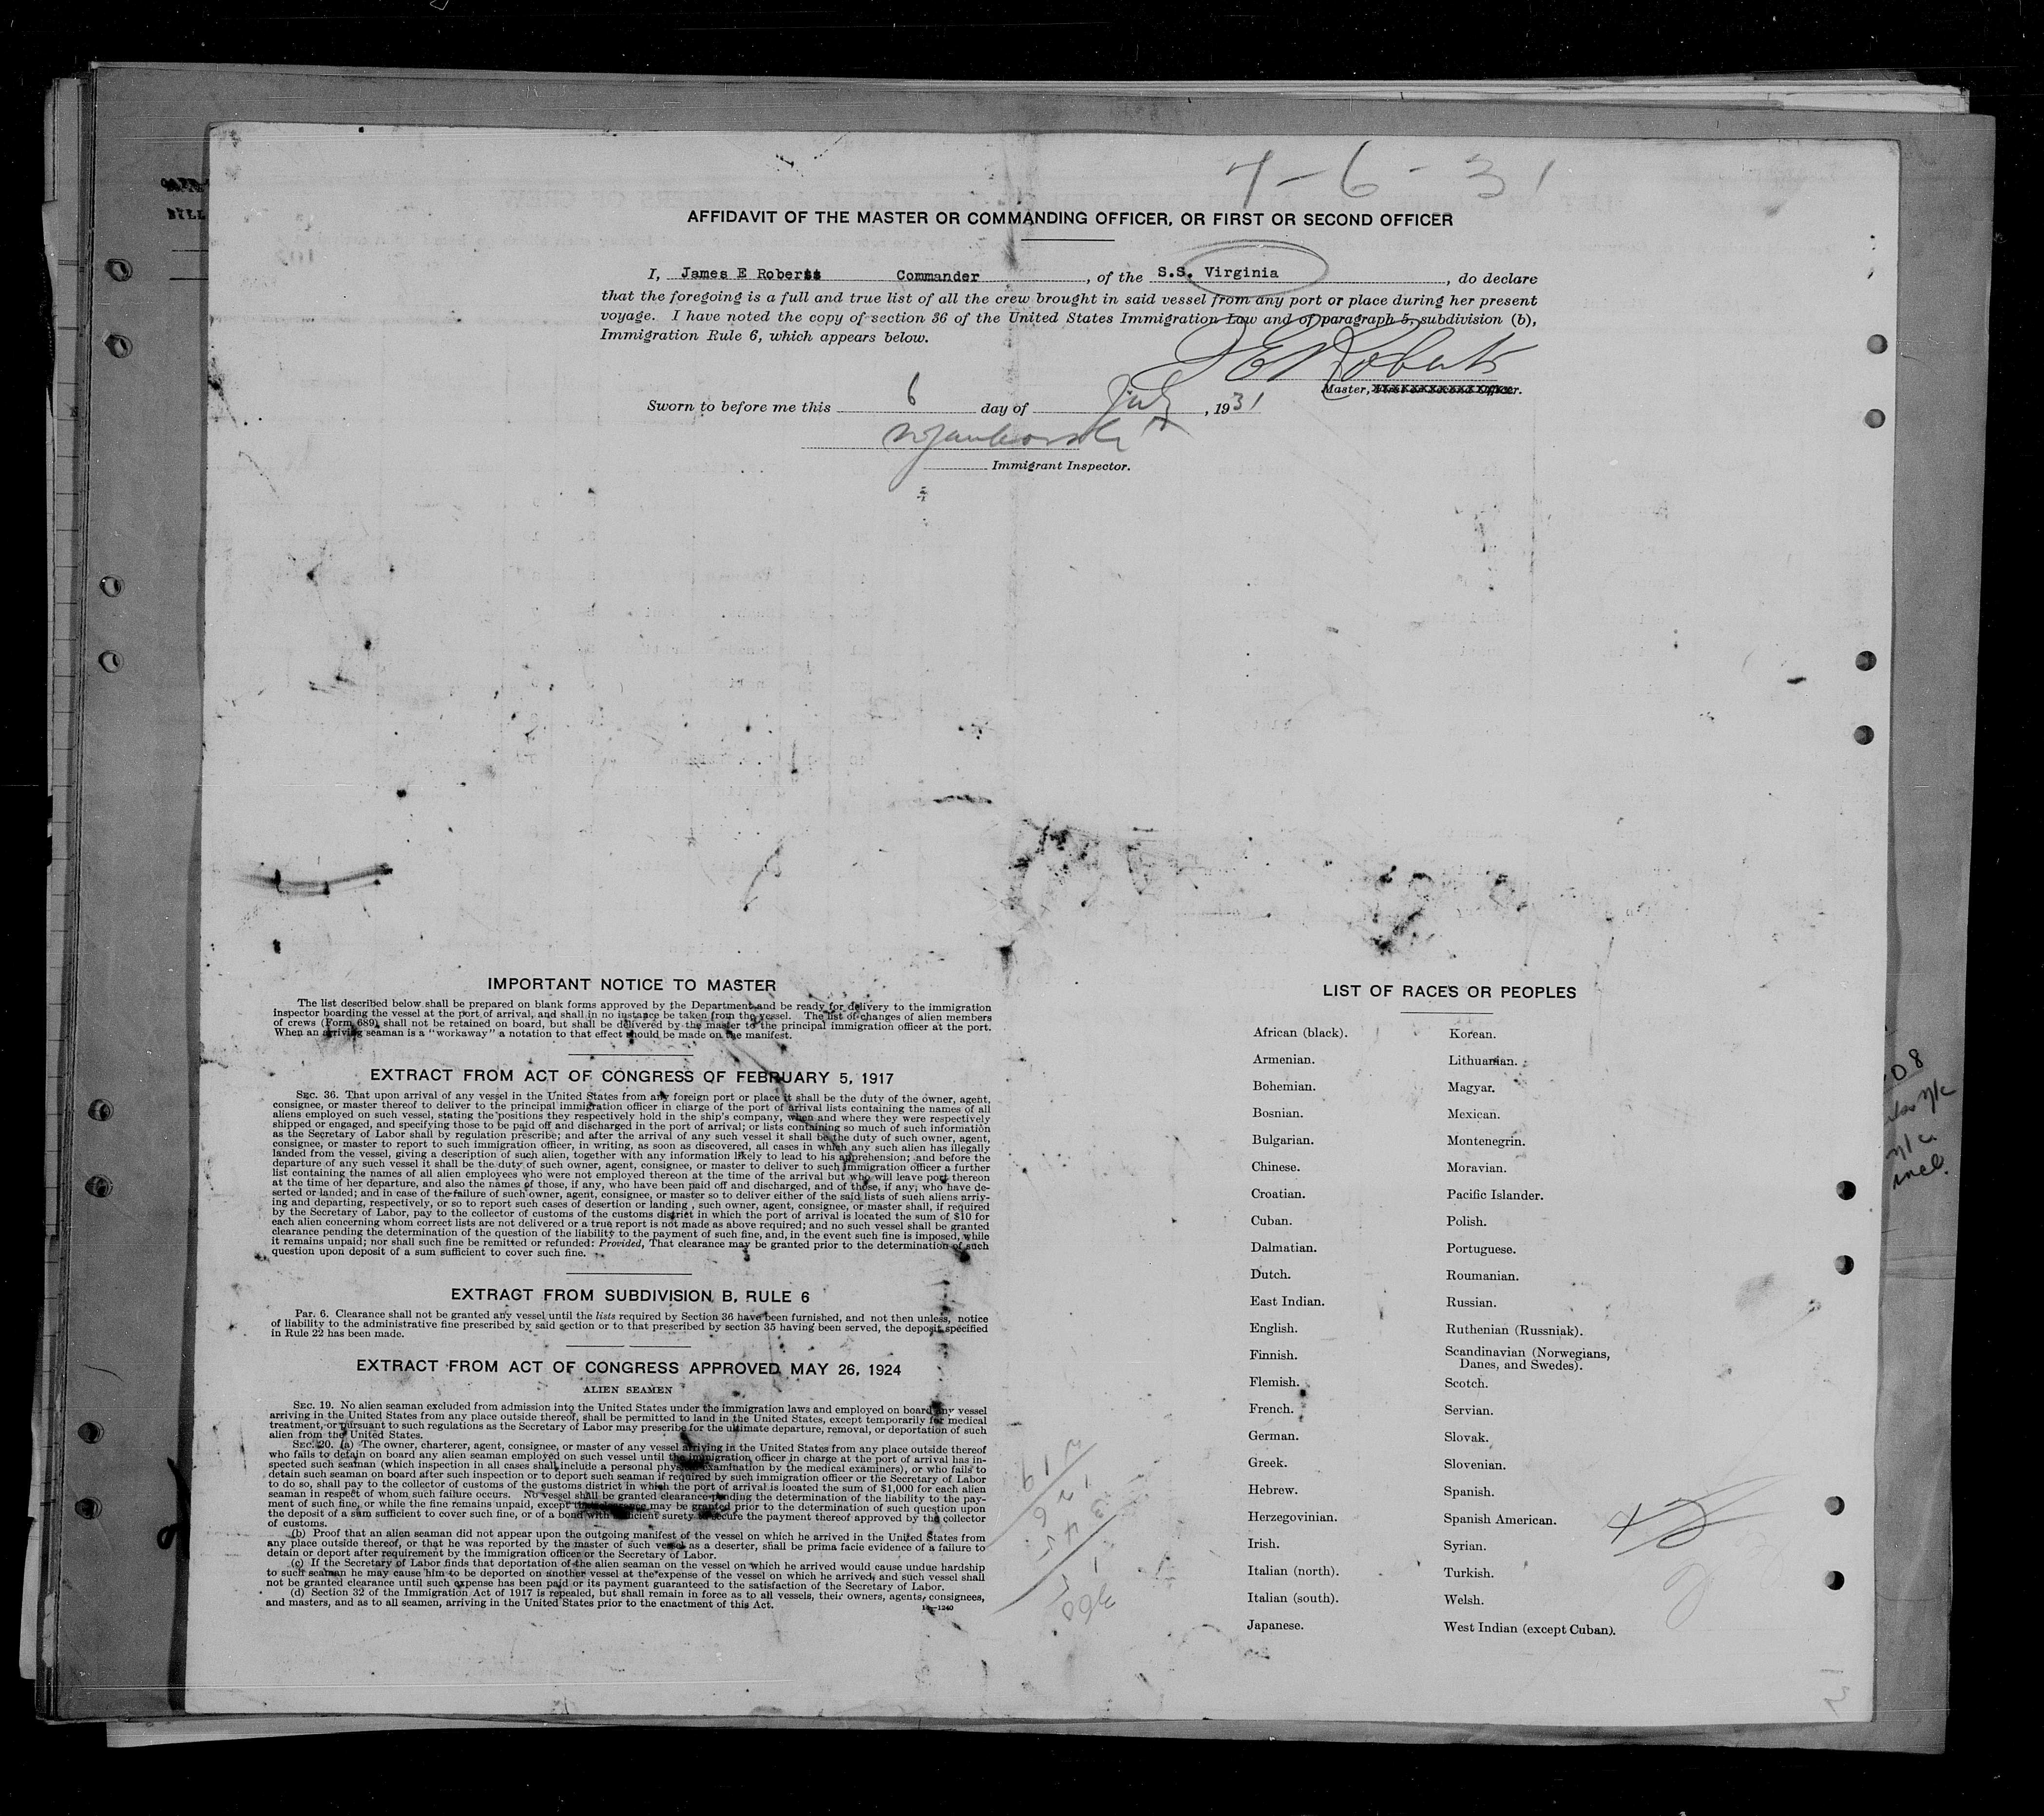 7-6-31
AFFIDAVIT OF THE MASTER OR COMMANDING OFFICER, OR FIRST OR SECOND OFFICER
I, James E Roberts Commander, of the S.S. Virginia, do declare
that the foregoing is a full and true list of all the crew brought in said vessel from any port or place during her present
voyage. I have noted the copy of section 36 of the United States Immigration Law and of paragraph 5, subdivision (b),
Immigration Rule 6, which appears below.
J E Roberts
Master, First or Second Officer.
Sworn to before me this 6 day of July, 1931
Immigrant Inspector.
IMPORTANT NOTICE TO MASTER
The list described below shall be prepared on blank forms approved by the Department and be ready for delivery to the immigration
inspector boarding the vessel at the port of arrival, and shall in no instance be taken from the vessel. The list of changes of alien members
of crews (Form 689) shall not be retained on board, but shall be delivered by the master to the principal immigration officer at the port.
When an arriving seaman is a "workaway" a notation to that effect should be made on the manifest.
EXTRACT FROM ACT OF CONGRESS OF FEBRUARY 5, 1917
SEC. 36. That upon arrival of any vessel in the United States from any foreign port or place it shall be the duty of the owner, agent,
consignee, or master thereof to deliver to the principal immigration officer in charge of the port of arrival lists containing the names of all
aliens employed on such vessel, stating the positions they respectively hold in the ship's company, when and where they were respectively
shipped or engaged, and specifying those to be paid off and discharged in the port of arrival; or lists containing so much of such information
as the Secretary of Labor shall by regulation prescribe; and after the arrival of any such vessel it shall be the duty of such owner, agent,
consignee, or master to report to such immigration officer, in writing, as soon as discovered, all cases in which any such alien has illegally
landed from the vessel, giving a description of such alien, together with any information likely to lead to his apprehension; and before the
departure of any such vessel it shall be the duty of such owner, agent, consignee, or master to deliver to such immigration officer a further
list containing the names of all alien employees who were not employed thereon at the time of the arrival but who will leave port thereon
at the time of her departure, and also the names of those, if any, who have been paid off and discharged, and of those, if any, who have de-
serted or landed; and in case of the failure of such owner, agent, consignee, or master so to deliver either of the said lists of such aliens arriv-
ing and departing, respectively, or so to report such cases of desertion or landing , such owner, agent, consignee, or master shall, if required
by the Secretary of Labor, pay to the collector of customs of the customs district in which the port of arrival is located the sum of $10 for
each alien concerning whom correct lists are not delivered or a true report is not made as above required; and no such vessel shall be granted
clearance pending the determination of the question of the liability to the payment of such fine, and, in the event such fine is imposed, while
it remains unpaid; nor shall such fine be remitted or refunded: Provided, That clearance may be granted prior to the determination of such
question upon deposit of a sum sufficient to cover such fine.
EXTRACT FROM SUBDIVISION B, RULE 6
Par. 6. Clearance shall not be granted any vessel until the lists required by Section 36 have been furnished, and not then unless, notice
of liability to the administrative fine prescribed by said section or to that prescribed by section 35 having been served, the deposit specified
in Rule 22 has been made.
EXTRACT FROM ACT OF CONGRESS APPROVED MAY 26, 1924
ALIEN SEAMEN
SEC. 19. No alien seaman excluded from admission into the United States under the immigration laws and employed on board any vessel
arriving in the United States from any place outside thereof, shall be permitted to land in the United States, except temporarily for medical
treatment, or pursuant to such regulations as the Secretary of Labor may prescribe for the ultimate departure, removal, or deportation of such
alien from the United States.
SEC. 20. (a) The owner, charterer, agent, consignee, or master of any vessel arriving in the United States from any place outside thereof
who fails to detain on board any alien seaman employed on such vessel until the immigration officer in charge at the port of arrival has in-
spected such seaman (which inspection in all cases shall include a personal physical examination by the medical examiners), or who fails to
detain such seaman on board after such inspection or to deport such seaman if required by such immigration officer or the Secretary of Labor
to do so, shall pay to the collector of customs of the customs district in which the port of arrival is located the sum of $1,000 for each alien
seaman in respect of whom such failure occurs. No vessel shall be granted clearance pending the determination of the liability to the pay-
ment of such fine, or while the fine remains unpaid, except that clearance may be granted prior to the determination of such question upon
the deposit of a sum sufficient to cover such fine, or of a bond with sufficient surety to secure the payment thereof approved by the collector
of customs.
(b) Proof that an alien seaman did not appear upon the outgoing manifest of the vessel on which he arrived in the United States from
any place outside thereof, or that he was reported by the master of such vessel as a deserter, shall be prima facie evidence of a failure to
detain or deport after requirement by the immigration officer or the Secretary of Labor.
(c) If the Secretary of Labor finds that deportation of the alien seaman on the vessel on which he arrived would cause undue hardship
to such seaman he may cause him to be deported on another vessel at the expense of the vessel on which he arrived, and such vessel shall
not be granted clearance until such expense has been paid or its payment guaranteed to the satisfaction of the Secretary of Labor.
(d) Section 32 of the Immigration Act of 1917 is repealed, but shall remain in force as to all vessels, their owners, agents, consignees,
and masters, and as to all seamen, arriving in the United States prior to the enactment of this Act.
14—1240
LIST OF RACES OR PEOPLES
African (black).
Armenian.
Bohemian.
Bosnian.
Bulgarian.
Chinese.
Croatian.
Cuban.
Dalmatian.
Dutch.
East Indian.
English.
Finnish.
Flemish.
French.
German.
Greek.
Hebrew.
Herzegovinian.
Irish.
Italian (north).
Italian (south).
Japanese.
Korean.
Lithuanian.
Magyar.
Mexican.
Montenegrin.
Moravian.
Pacific Islander.
Polish.
Portuguese.
Roumanian.
Russian.
Ruthenian (Russniak).
Scandinavian (Norwegians,
Danes, and Swedes).
Scotch.
Servian.
Slovak.
Slovenian.
Spanish.
Spanish American.
Syrian.
Turkish.
Welsh.
West Indian (except Cuban).